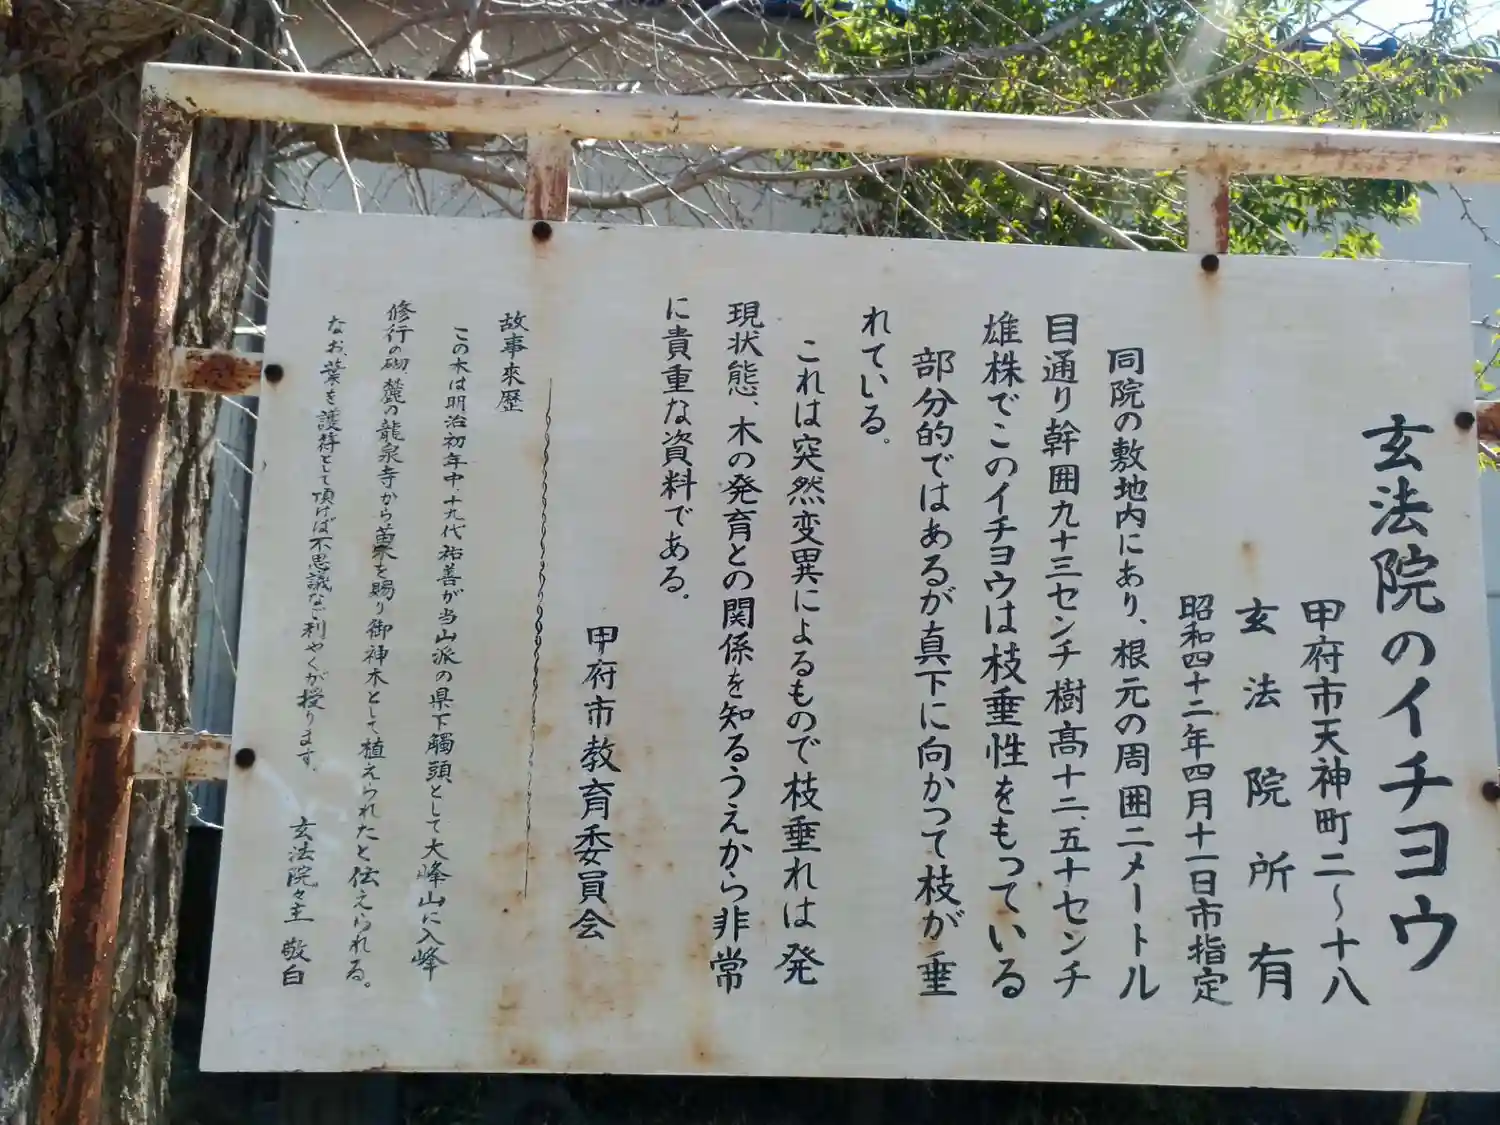 玄法院のイチヨウ
甲府市天神町二〜十八
玄法院所有
昭和四十二年四月十一日市指定
同院の敷地内にあり、根元の周囲二メートル
目通り幹囲九十三センチ樹高十二、五十センチ
雄株でこのイチヨウは枝垂性をもっている
部分的ではあるが真下に向かって枝が垂
れている。
これは突然変異によるもので枝垂れは発
現状態、木の発育との関係を知るうえから非常
に貴重な資料である。
甲府市教育委員会
故事来歴
この木は明治初年中、十九代祐善が当山派の県下觸頭として大峰山に入峰
修行の砌麓の龍泉寺から苗木を賜り御神木として植えられたと伝えられる。
なお、葉を護符として頂けば不思議なご利やくが授ります。
玄法院々主 敬白